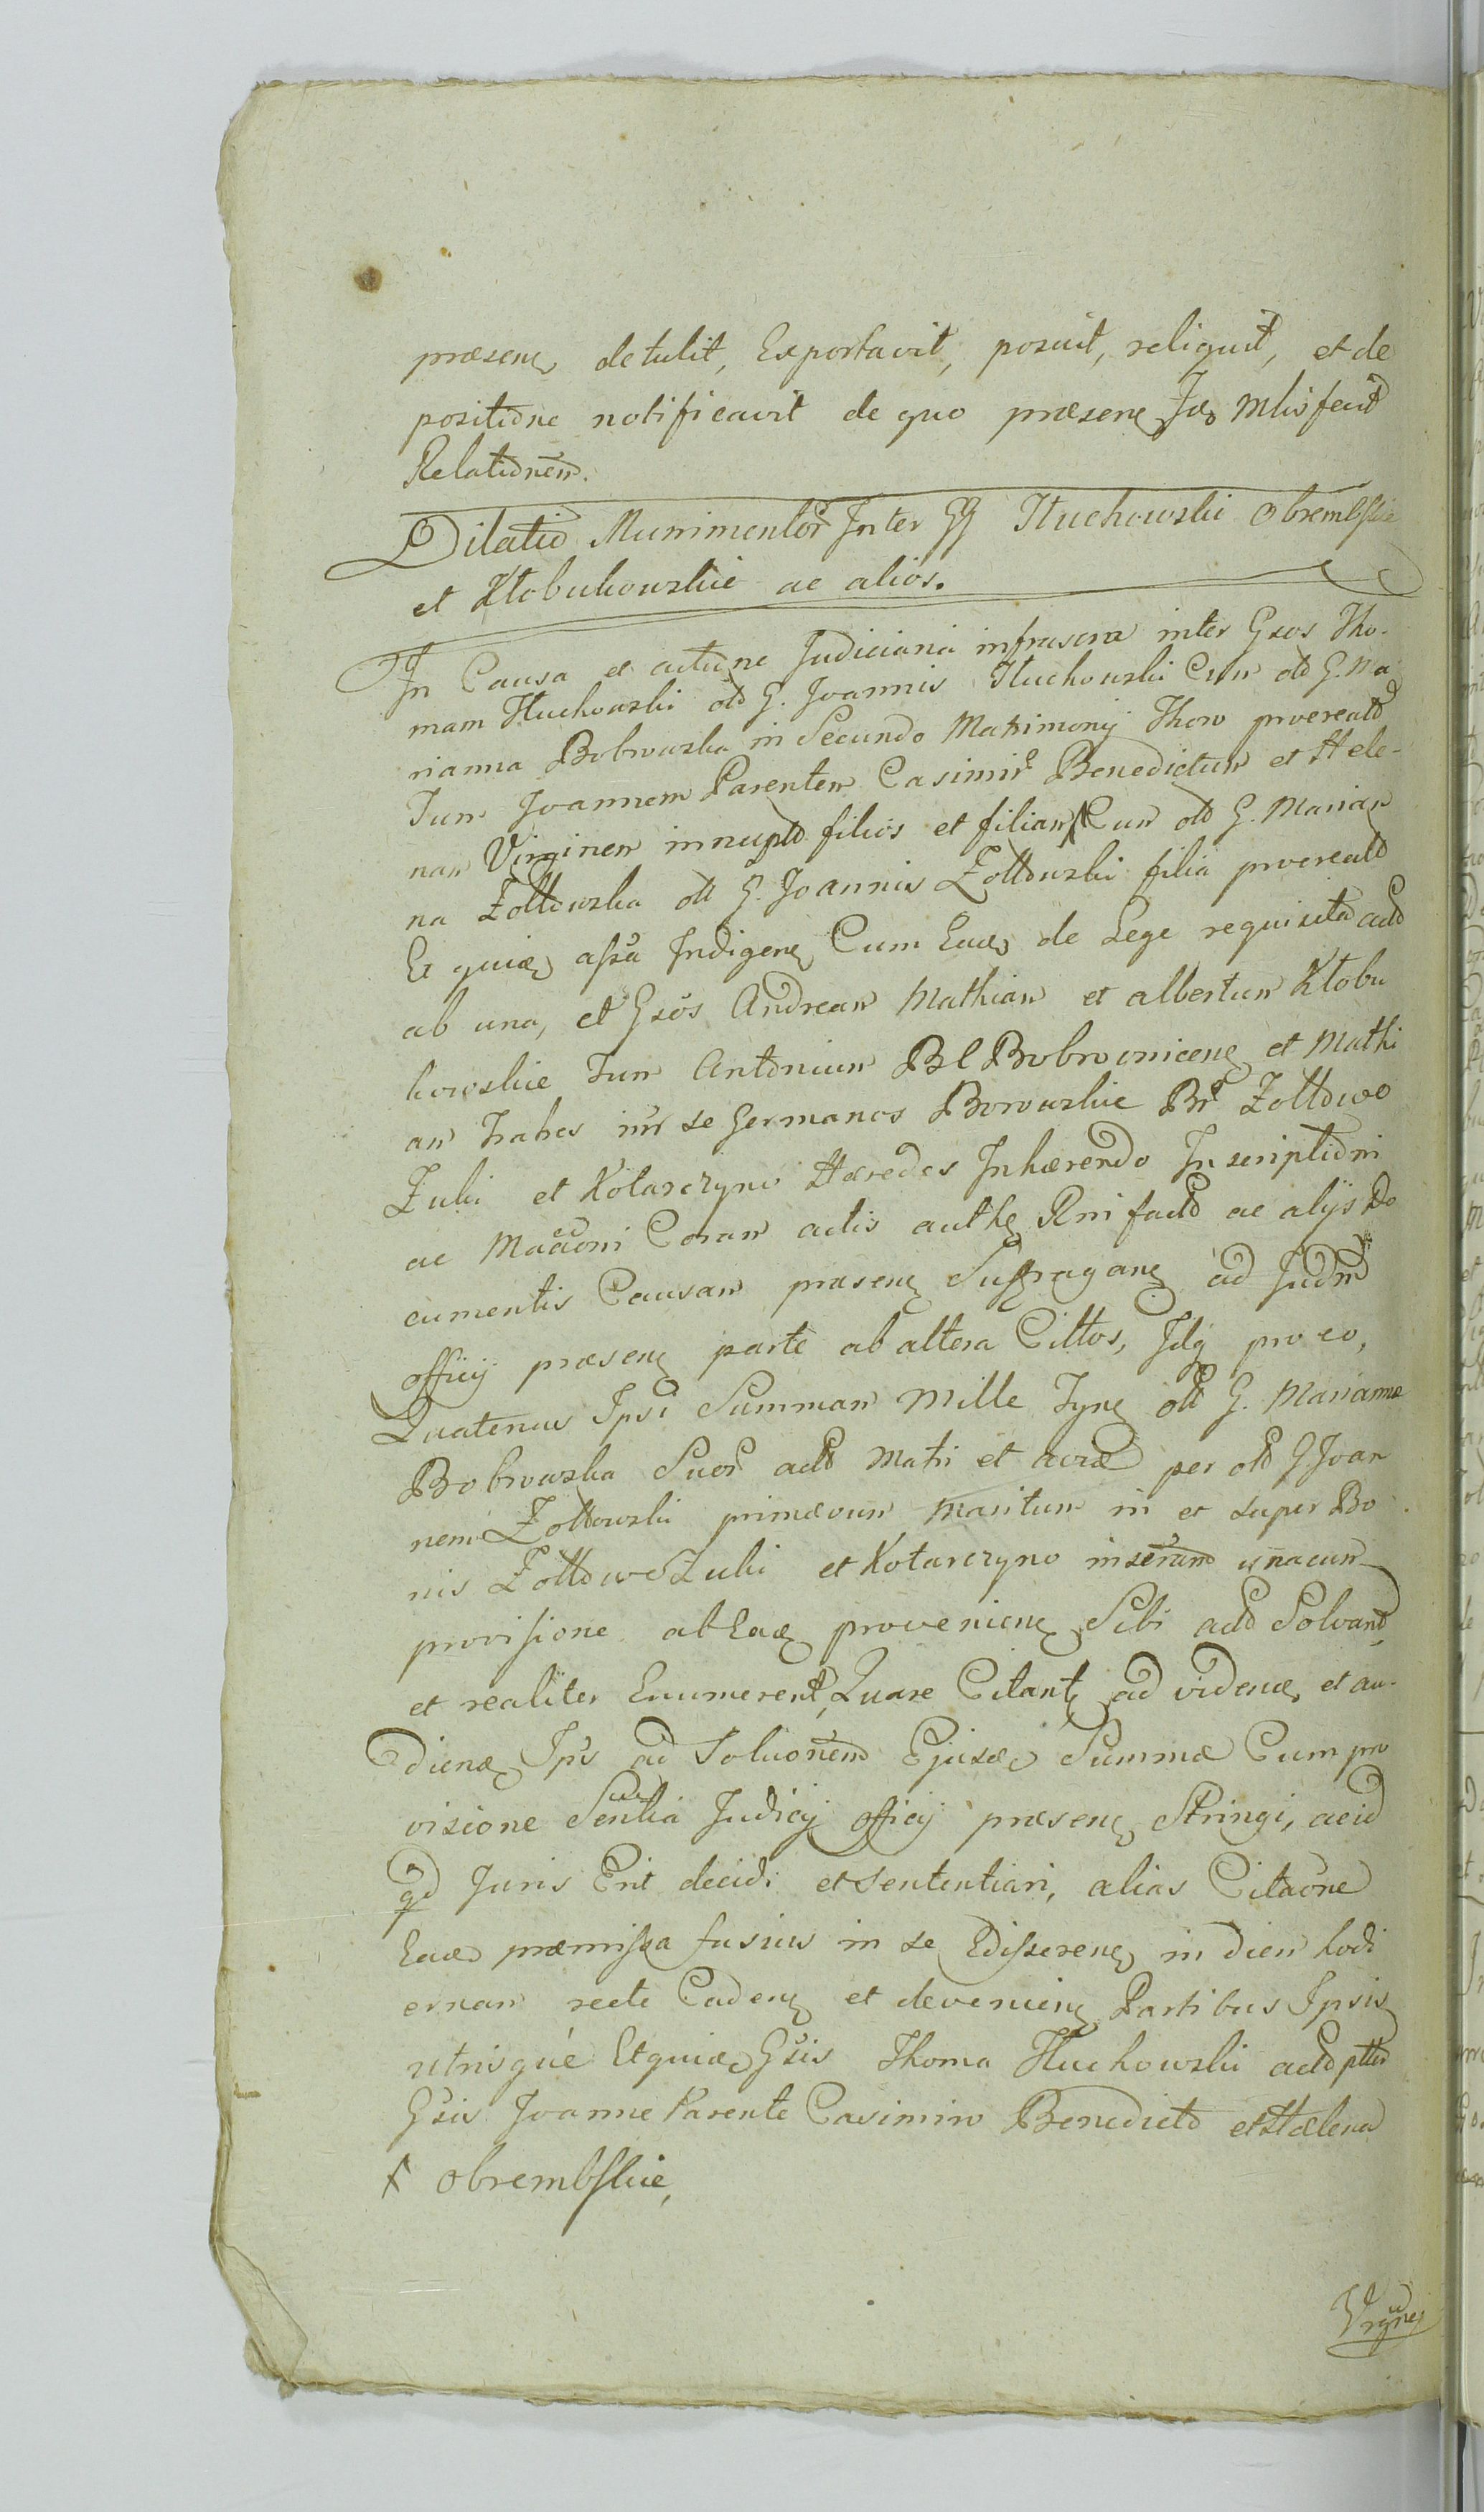 præsens detulit, Exportavit, posuit, reliquit, et de
positione notificavit de quo præsens Idē Mlis fecit
Relationem.
Dilatio Munimentor Inter GG Huchowski Obrembskie
et Kłobukowskie ac alios.
In Causa et actione Judiciaria infrascra inter Gsos Tho-
mam Huchowski olt G. Joannis Huchowski Cum olt G. Ma
rianna Bobrowska in Secundo Matrimonij Thoro procreatt
Tum Joannem Parentem Casimir Benedictum et Hele-
nam Virginem innuptā filios et filiam ꟻ Cum olt G. Marian
na Zołtowska olt G. Joannis Zołtowski filia procreatt
Et quidē assa Indigens Cum Eadē de Lege requisita actt
ab una, et Gsos Andream Mathiam et albertum Kłobu
kowskie Tum Antonium BC Bobrownicens et Mathi
am Fratres intr se Germanos Borowskie Br Zołtowo
Żuki et Kotarczyno Hæredes Inhærendo Inscriptioni
ac Maōoni Coram actis authē Rni factt ac alijs Do
cumentis Causam præsens Suffragans ad Judm
officij præsens parte ab altera Cittos, Idq pro eo,
Quatenus Ipsi Summam Mille Tyns olt G. Mariannæ
Bobrowska Suor actt Matri et aviæ per olt G Joan
nem Zołtowski primævum Maritum in et super Bo
nis Zołtowo Żuki et Kotarczyno inseram unacum
provisione ab Eadē proveniens Sibi actt Solvant
et realiter Enumerent, Quare Citants ad videndē et au-
diendē Ips ad Solvonem Ejusdē Summæ Cum pro
visione Sentia Judicij officij præsens Stringi, acid
qd Juris Erit decidi et sententiari, alias Citaōne
Eadē præmissa fusius in se Edisserens in diem hodi
ernam recte Cadens et deveniens Partibus Ipsis
utrisque Etquidē Gsis Thoma Huchowski actt pttr
Gsis Joanne Parente Casimiro Benedicto et Hælena
ꟻ Obrembskie,
Vrgine